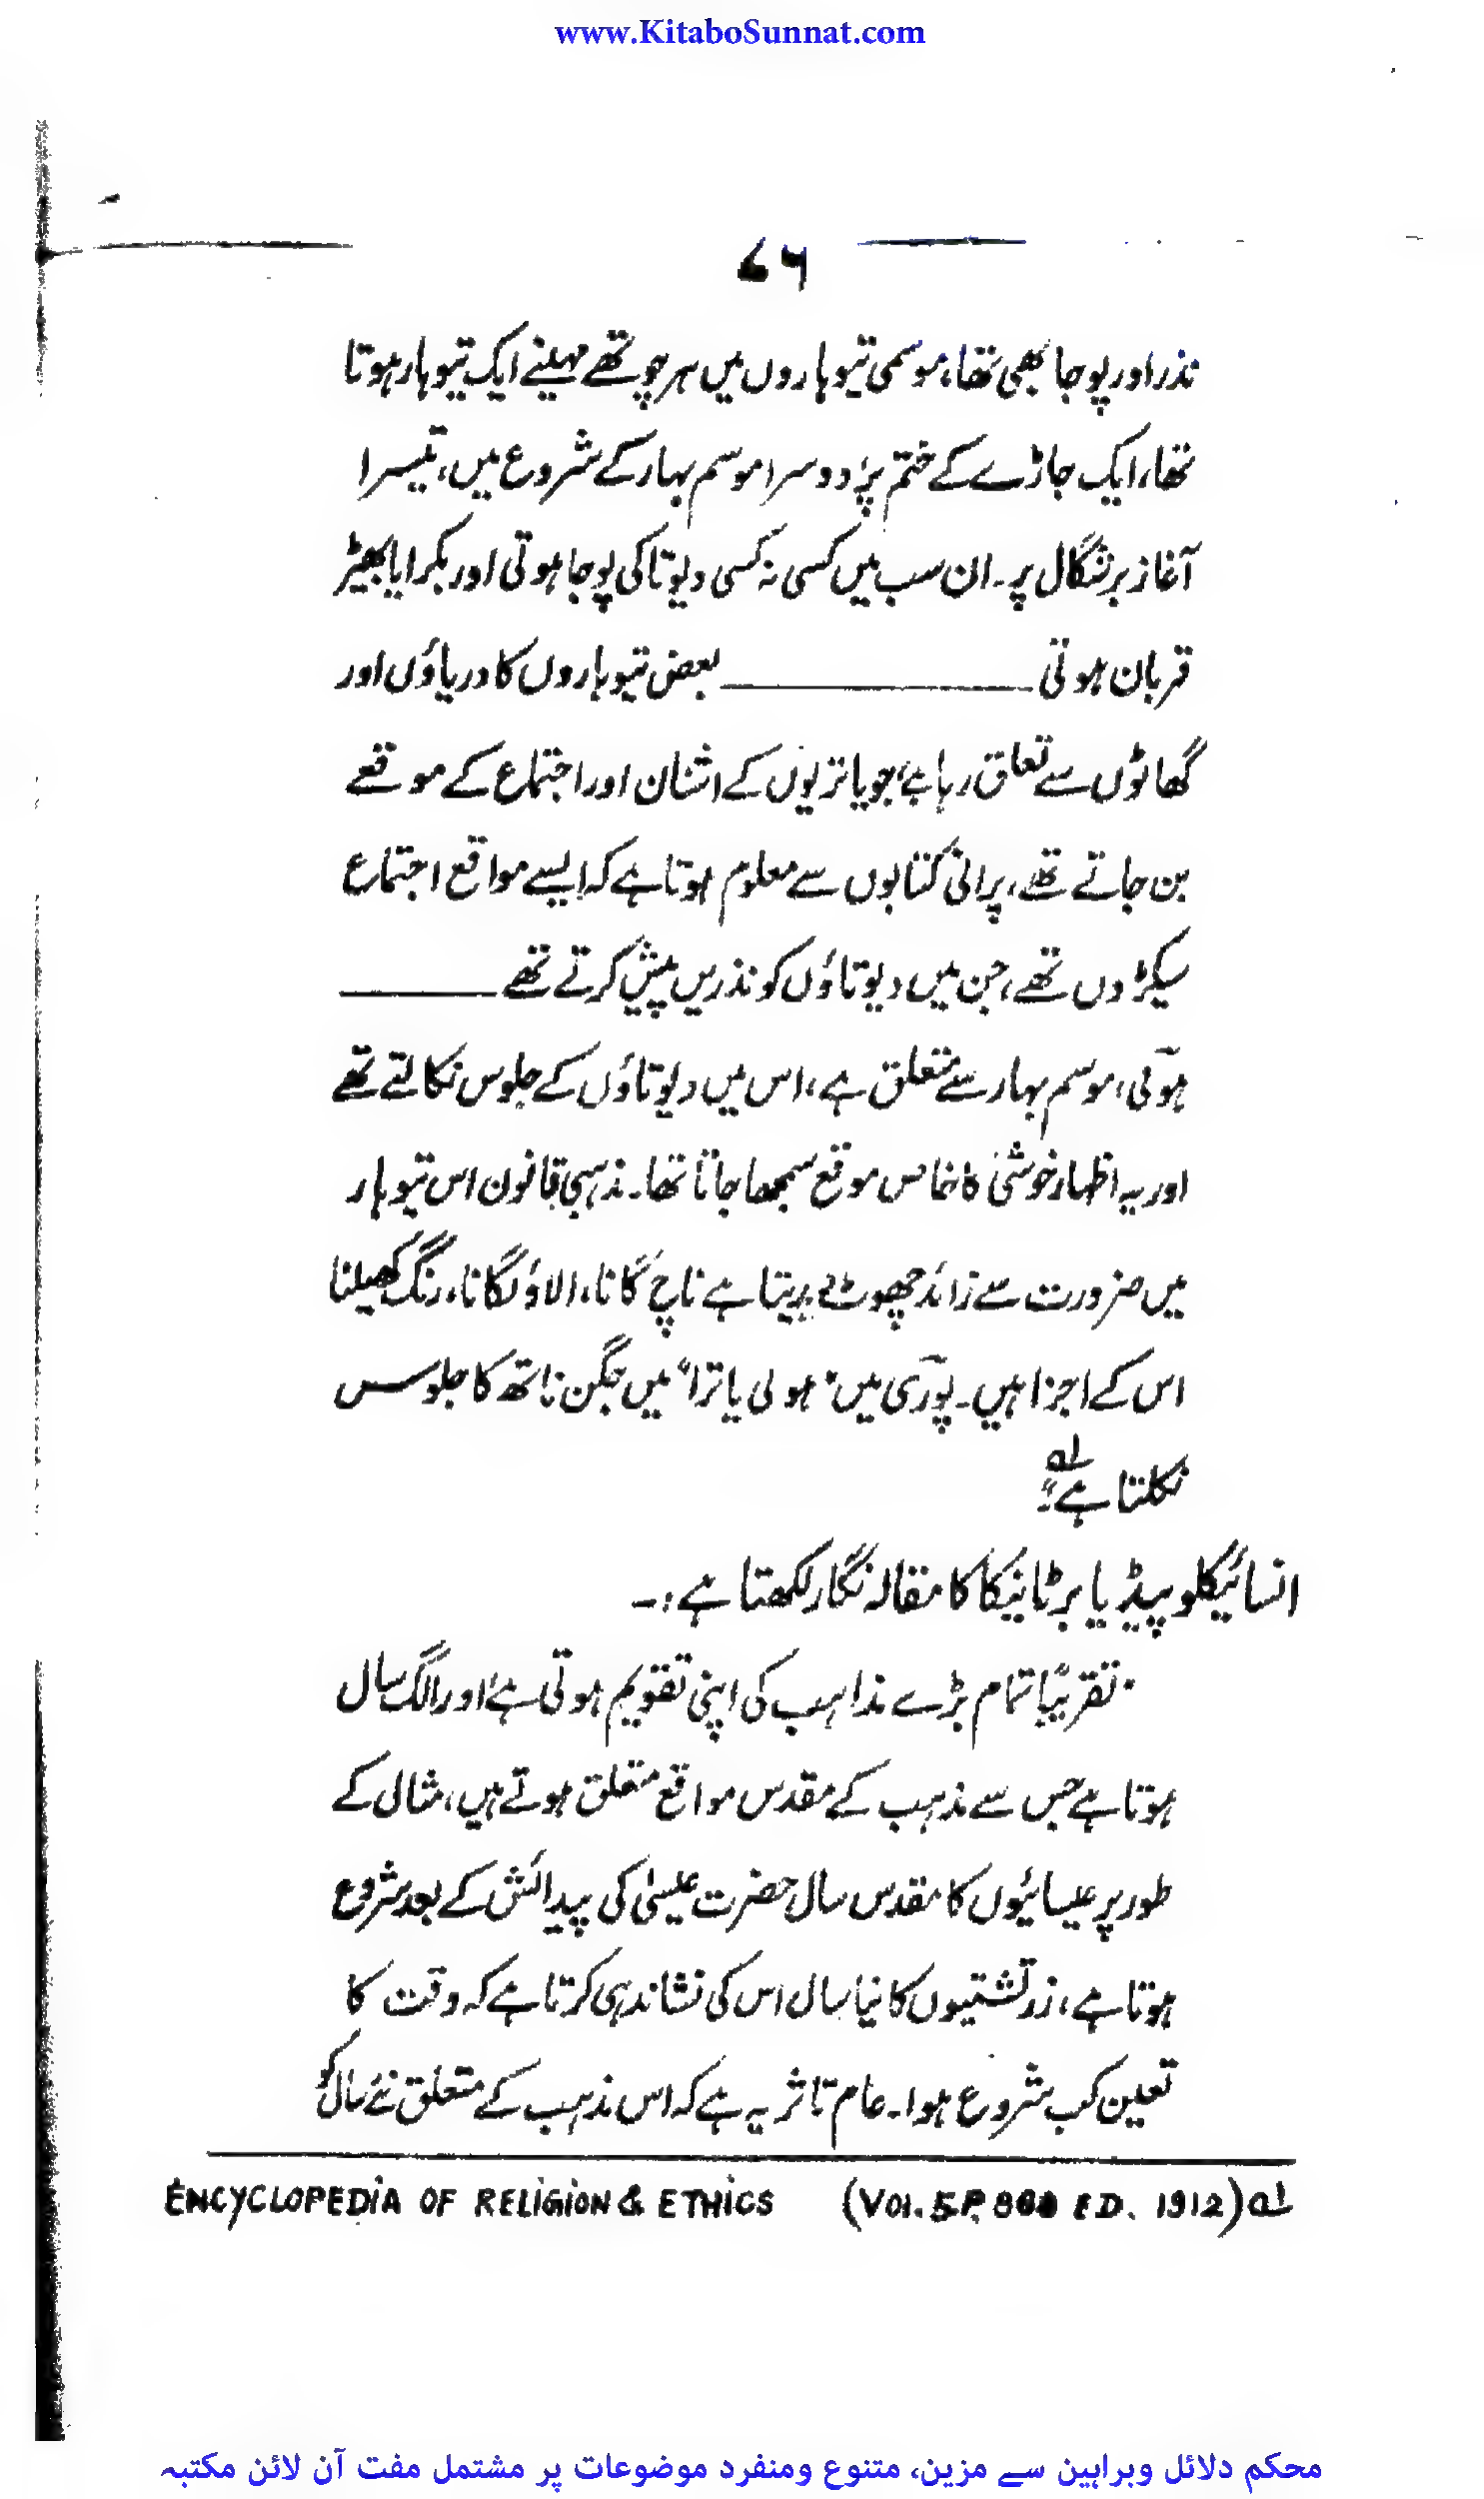 www.KitaboSunnat.com
۷۶
نذر اور پوجا بھی تھا، موسمی تیوہاروں میں ہر چوتھے مہینے ایک تیوہار ہوتا
تھا، ایک جاڑے کے ختم پر، دوسرا موسم بہار کے شروع میں، تیسرا
آغاز برشگال پر۔ ان سب میں کسی نہ کسی دیوتا کی پوجا ہوتی اور بکرا یا بھیڑ
قربان ہوتی ـــــــــــــ بعض تیوہاروں کا دریاؤں اور
گھاٹوں سے تعلق رہا ہے، جو یاتریوں کے اشنان اور اجتماع کے موقعے
بن جاتے تھے، پرانی کتابوں سے معلوم ہوتا ہے کہ ایسے مواقع اجتماع
سیکڑوں تھے، جن میں دیوتاؤں کو نذریں پیش کرتے تھے ـــــــــــــ
ہوتی، موسم بہار سے متعلق ہے، اس میں دیوتاؤں کے جلوس نکالتے تھے
اور یہ اظہار خوشی کا خاص موقع سمجھا جاتا تھا۔ مذہبی قانون اس تیوہار
میں ضرورت سے زائد چھوٹ دیتا ہے ناچ گانا، الاؤ لگانا، رنگ کھیلنا
اس کے اجزا ہیں۔ پوری میں "ہولی یاترا" میں جگن ناتھ کا جلوس
نکلتا ہے" لہ
انسائیکلوپیڈیا برٹانیکا کا مقالہ نگار لکھتا ہے:۔
"تقریباً تمام بڑے مذاہب کی اپنی تقویم ہوتی ہے، اور الگ سال
ہوتا ہے جس سے مذہب کے مقدس مواقع متعلق ہوتے ہیں، مثال کے
طور پر عیسائیوں کا مقدس سال حضرت عیسیٰ کی پیدائش کے بعد شروع
ہوتا ہے، زرتشتیوں کا نیا سال اس کی نشاندہی کرتا ہے کہ وقت کا
تعین کب شروع ہوا۔ عام تاثر یہ ہے کہ اس مذہب کے متعلق نئے سال کو
لہ ENCYCLOPEDIA OF RELIGION & ETHICS (VOL. 5. P. ED. 1912)
محکم دلائل وبراہین سے مزین، متنوع ومنفرد موضوعات پر مشتمل مفت آن لائن مکتبہ